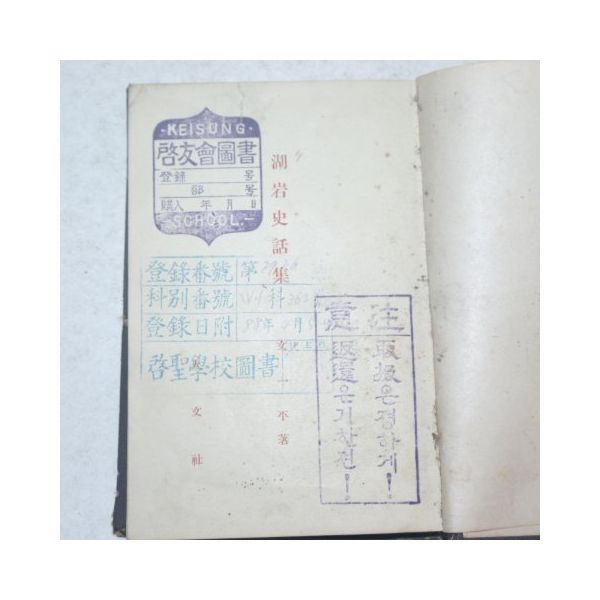 KEISUNG
啓友會圖書
登錄 号
部 号
購入 年 月 日
SCHOOL
湖岩史話集
文一平著
文社
登錄番號 第
科別番號 科
登錄日附 年 月
啓聖學校圖書
注意
取扱은정하게!
返還은기한전!